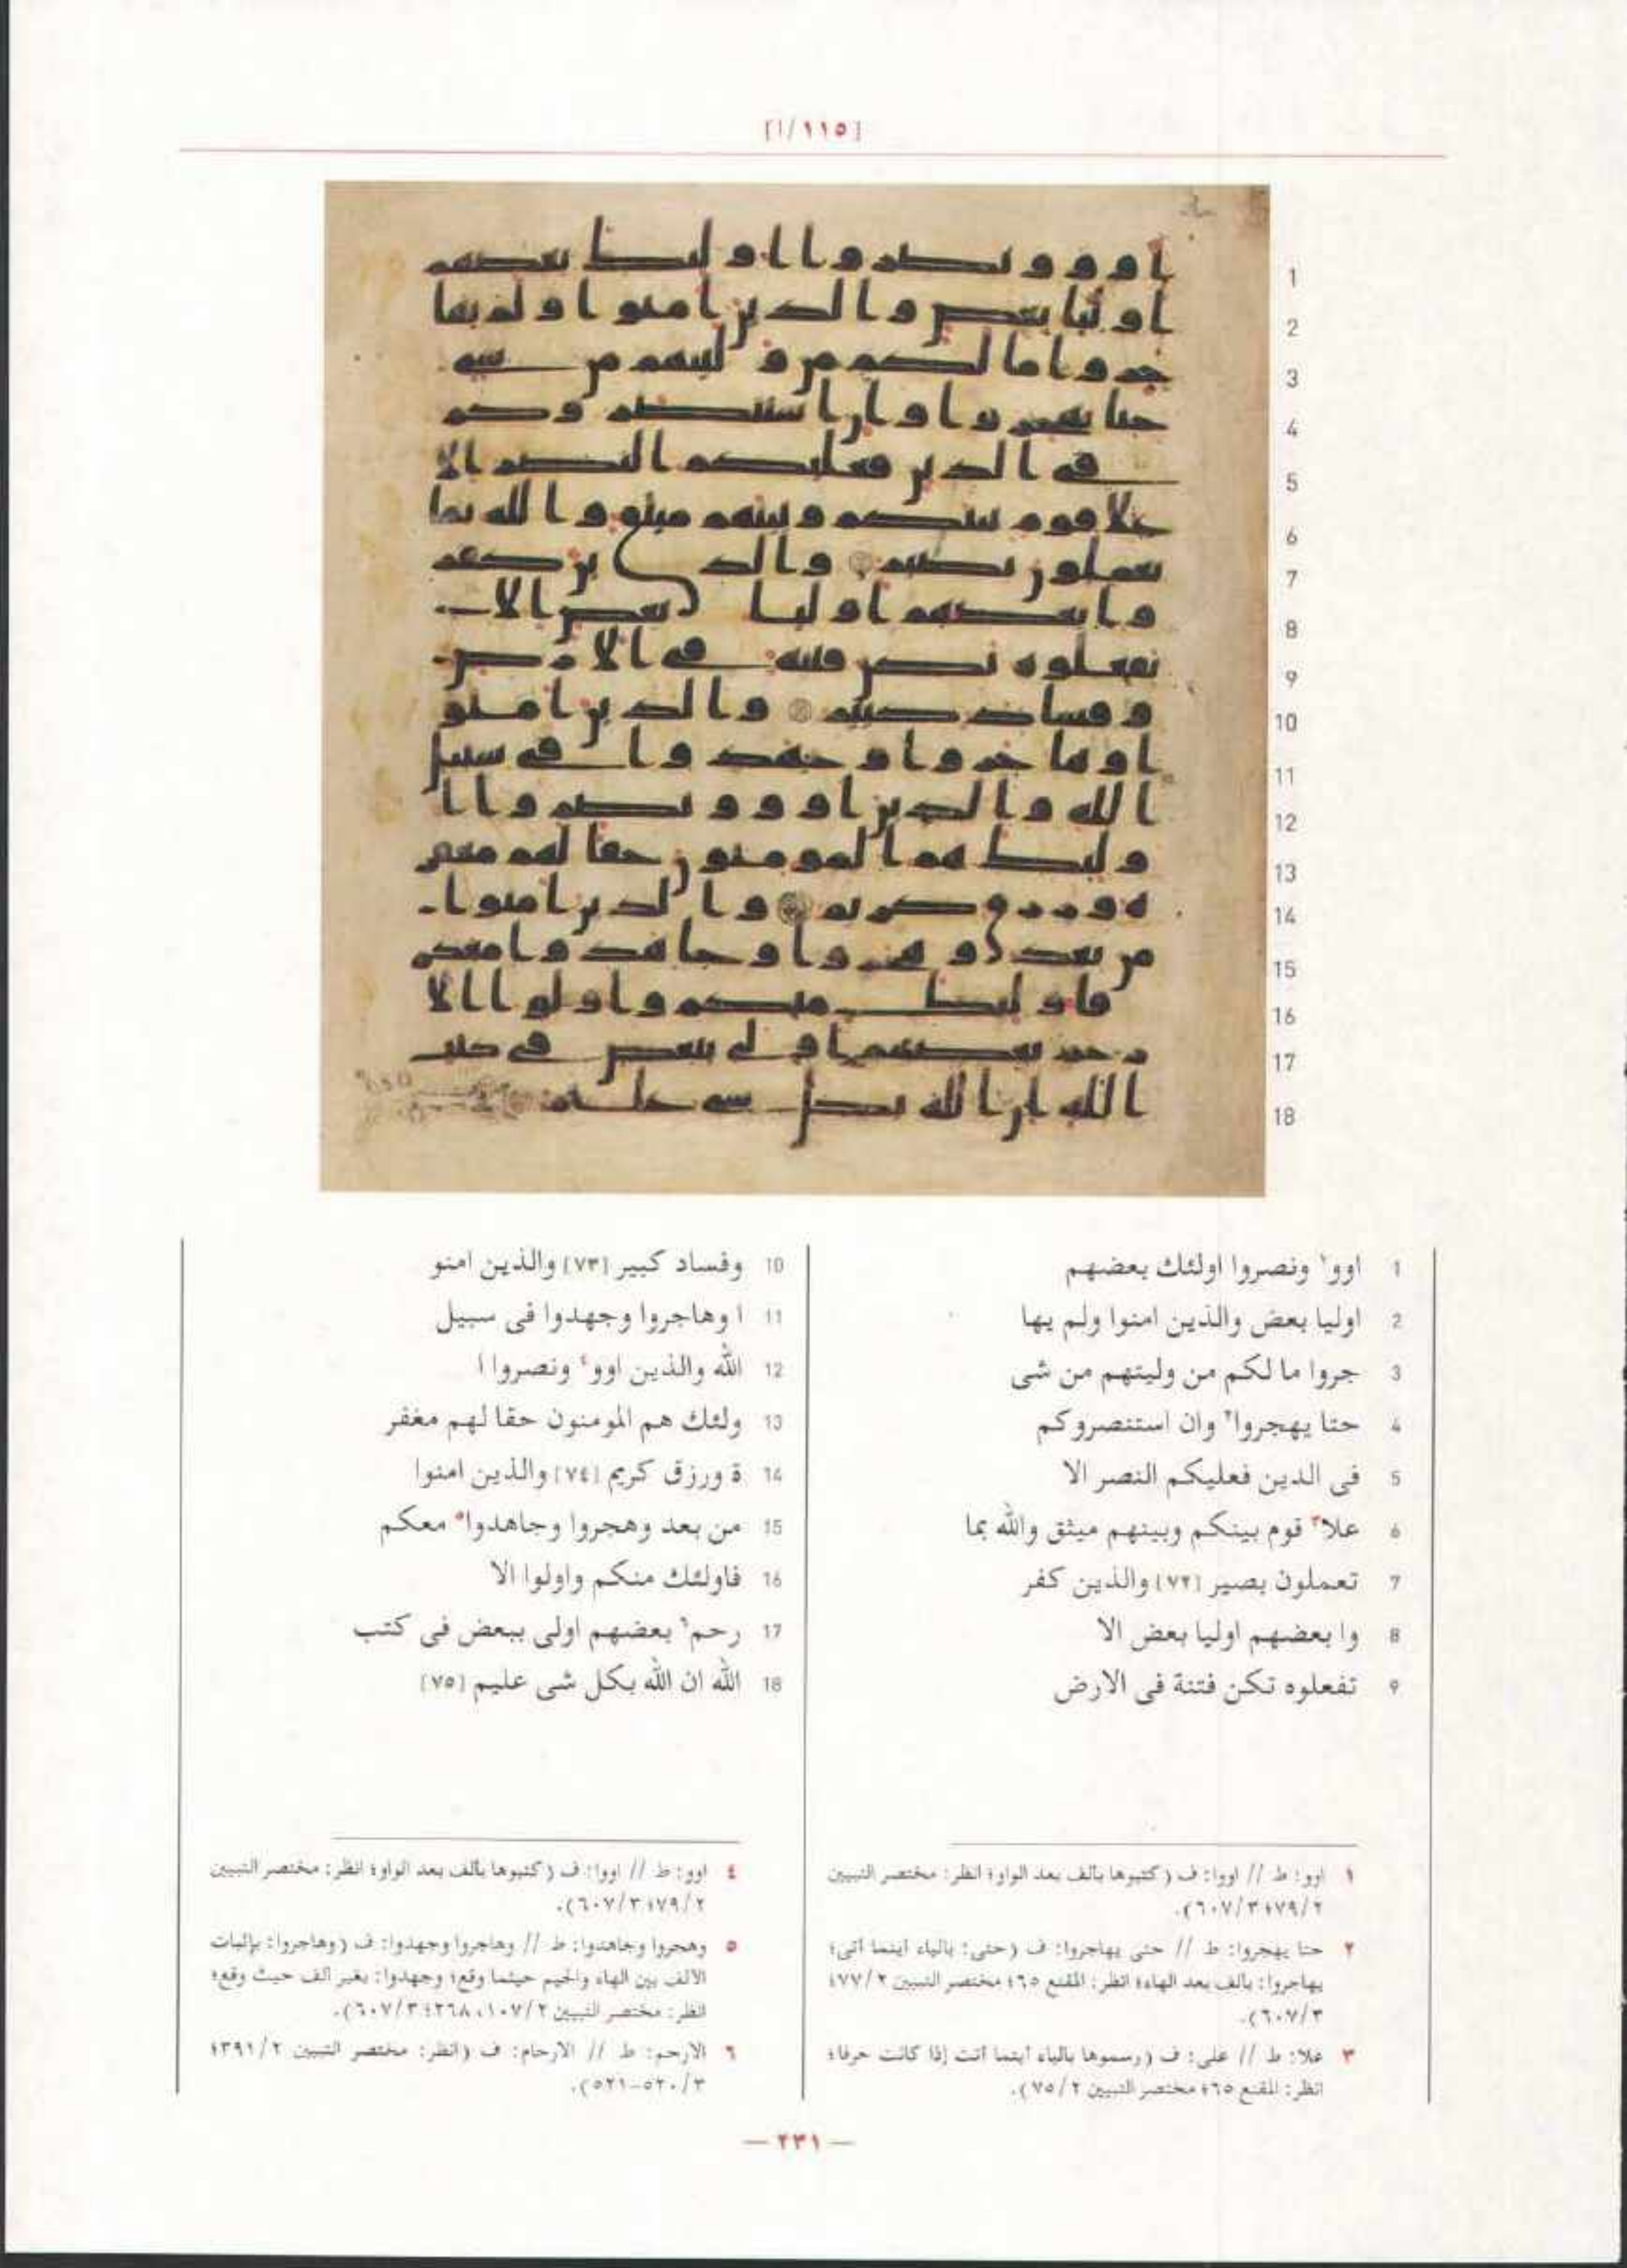 [١١٥/أ]
1 اوو١ ونصروا اولئك بعضهم
2 اوليا بعض والذين امنوا ولم يها
3 جروا ما لكم من وليتهم من شى
4 حتا يهجروا٢ وان استنصروكم
5 فى الدين فعليكم النصر الا
6 علا٣ قوم بينكم وبينهم ميثق والله بما
7 تعملون بصير [٧٢] والذين كفر
8 وا بعضهم اوليا بعض الا
9 تفعلوه تكن فتنة فى الارض
10 وفساد كبير [٧٣] والذين امنو
11 ا وهاجروا وجهدوا فى سبيل
12 الله والذين اوو٤ ونصروا ا
13 ولئك هم المومنون حقا لهم مغفر
14 ة ورزق كريم [٧٤] والذين امنوا
15 من بعد وهجروا وجاهدوا٥ معكم
16 فاولئك منكم واولوا الا
17 رحم٦ بعضهم اولى ببعض فى كتب
18 الله ان الله بكل شى عليم [٧٥]
١ اوو: ط // اووا: ف (كتبوها بألف بعد الواو؛ انظر: مختصر التبيين
٢/٧٩؛ ٣/٦٠٧).
٢ حتا يهجروا: ط // حتى يهاجروا: ف (حتى: بالياء أينما أتى؛
يهاجروا: بالف بعد الهاء؛ انظر: المقنع ٦٥؛ مختصر التبيين ٢/٧٧؛
٣/٦٠٧).
٣ علا: ط // على: ف (رسموها بالياء أينما أتت إذا كانت حرفا؛
انظر: المقنع ٦٥؛ مختصر التبيين ٢/٧٥).
٤ اوو: ط // اووا: ف (كتبوها بألف بعد الواو؛ انظر: مختصر التبيين
٢/٧٩؛ ٣/٦٠٧).
٥ وهجروا وجاهدوا: ط // وهاجروا وجهدوا: ف (وهاجروا: بإثبات
الالف بين الهاء والجيم حيثما وقع؛ وجهدوا: بغير الف حيث وقع؛
انظر: مختصر التبيين ٢/١٠٧، ٢٦٨؛ ٣/٦٠٧).
٦ الارحم: ط // الارحام: ف (انظر: مختصر التبيين ٢/٣٩١؛
٣/٥٢٠-٥٢١).
— ٢٣١ —